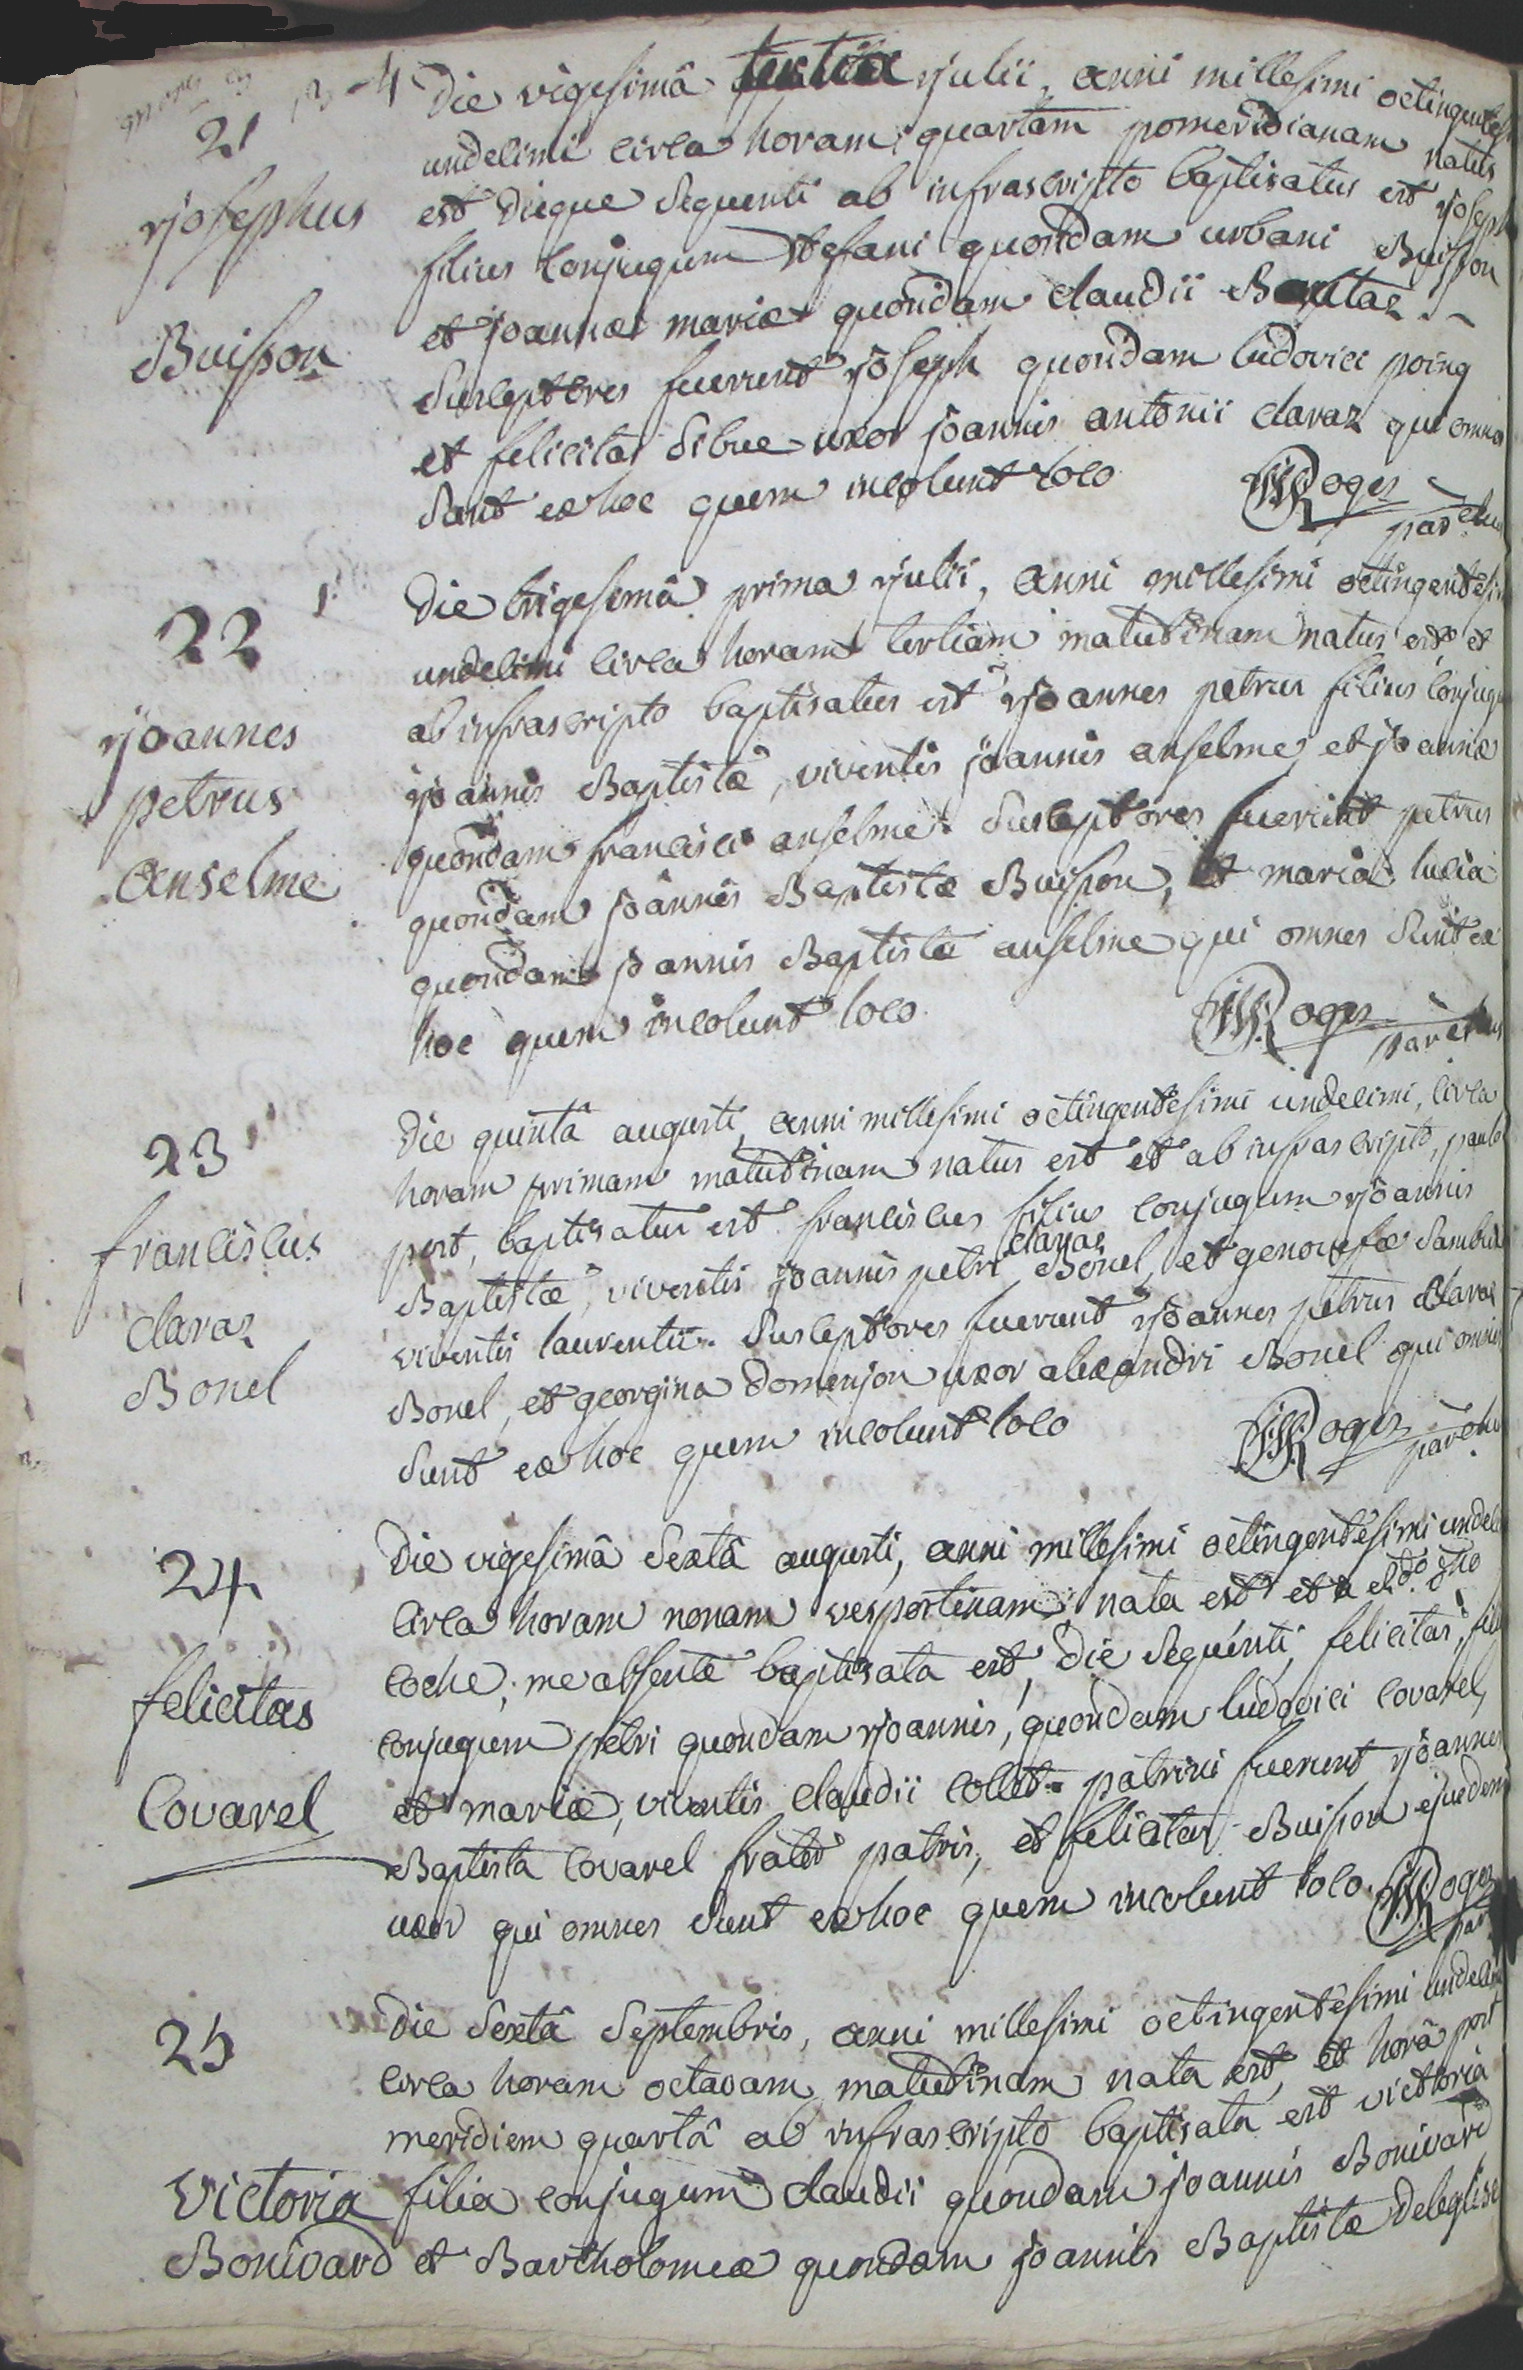 21
josephus
Buisson
Die vigesimâ tertiâ julii, anni millesimi octingentesi
undecimi circa horam quartam pomeridianam natus
est dieque sequenti ab infrascripto baptisatus est joseph
filius conjugum stefani quondam urbani Buisson
et joannæ mariæ quondam claudii
susceptores fuerunt joseph quondam ludovici poing
et felicitas sibue uxor joannis antonii claraz qui omnes
sunt ex hoc quem incolunt loco
Roges
parochus
22
joannes
petrus
anselme
Die trigesimâ prima julii, anni millesimi octingentesi
undecimi circa horam tertiam matutinam natus est et
ab infrascripto baptisatus est joannes petrus filius conjugu
joannis Baptistæ, viventis joannis anselme et joannæ
quondam francisci anselme. susceptores fuerunt petrus
quondam joannis Baptistæ Buisson, et maria lucia
quondam joannis Baptistæ anselme qui omnes sunt ex
hoc quem incolunt loco
Roges
parochus
23
franciscus
claraz
Bonel
Die quintâ augusti, anni millesimi octingentesimi undecimi, circa
horam primam matutinam natus est et ab infrascripto, paulo
post, baptisatus est franciscus filius conjugum joannis
Baptistæ, viventis joannis petri claraz Bonel, et genovefæ sambuis
viventis laurentii. susceptores fuerunt joannes petrus claraz
Bonel, et georgina domenjon uxor alexandri Bonel qui omnes
sunt ex hoc quem incolunt loco
Roges
parochus
24
felicitas
Covarel
Die vigesimâ sextâ augusti, anni millesimi octingentesimi undeci
circa horam nonam vespertinam; nata est et a
coche, me absente baptisata est, die sequenti, felicitas, filia
conjugum petri quondam joannis, quondam ludovici covarel,
et mariæ, viventis claudii collet. patrini fuerunt joannes
Baptista covarel frater patris, et felicitas Buisson ejusdem
uxor qui omnes sunt ex hoc quem incolunt loco. Roges
par
25
Victoria
Bonivard
Die sextâ septembris, anni millesimi octingentesimi undecimi
circa horam octavam matutinam nata est, et horâ post
meridiem quartâ ab infrascripto baptisata est victoria
filia conjugum claudii quondam joannis Bonivard
et Bartholomeæ quondam joannis Baptistæ deleglise